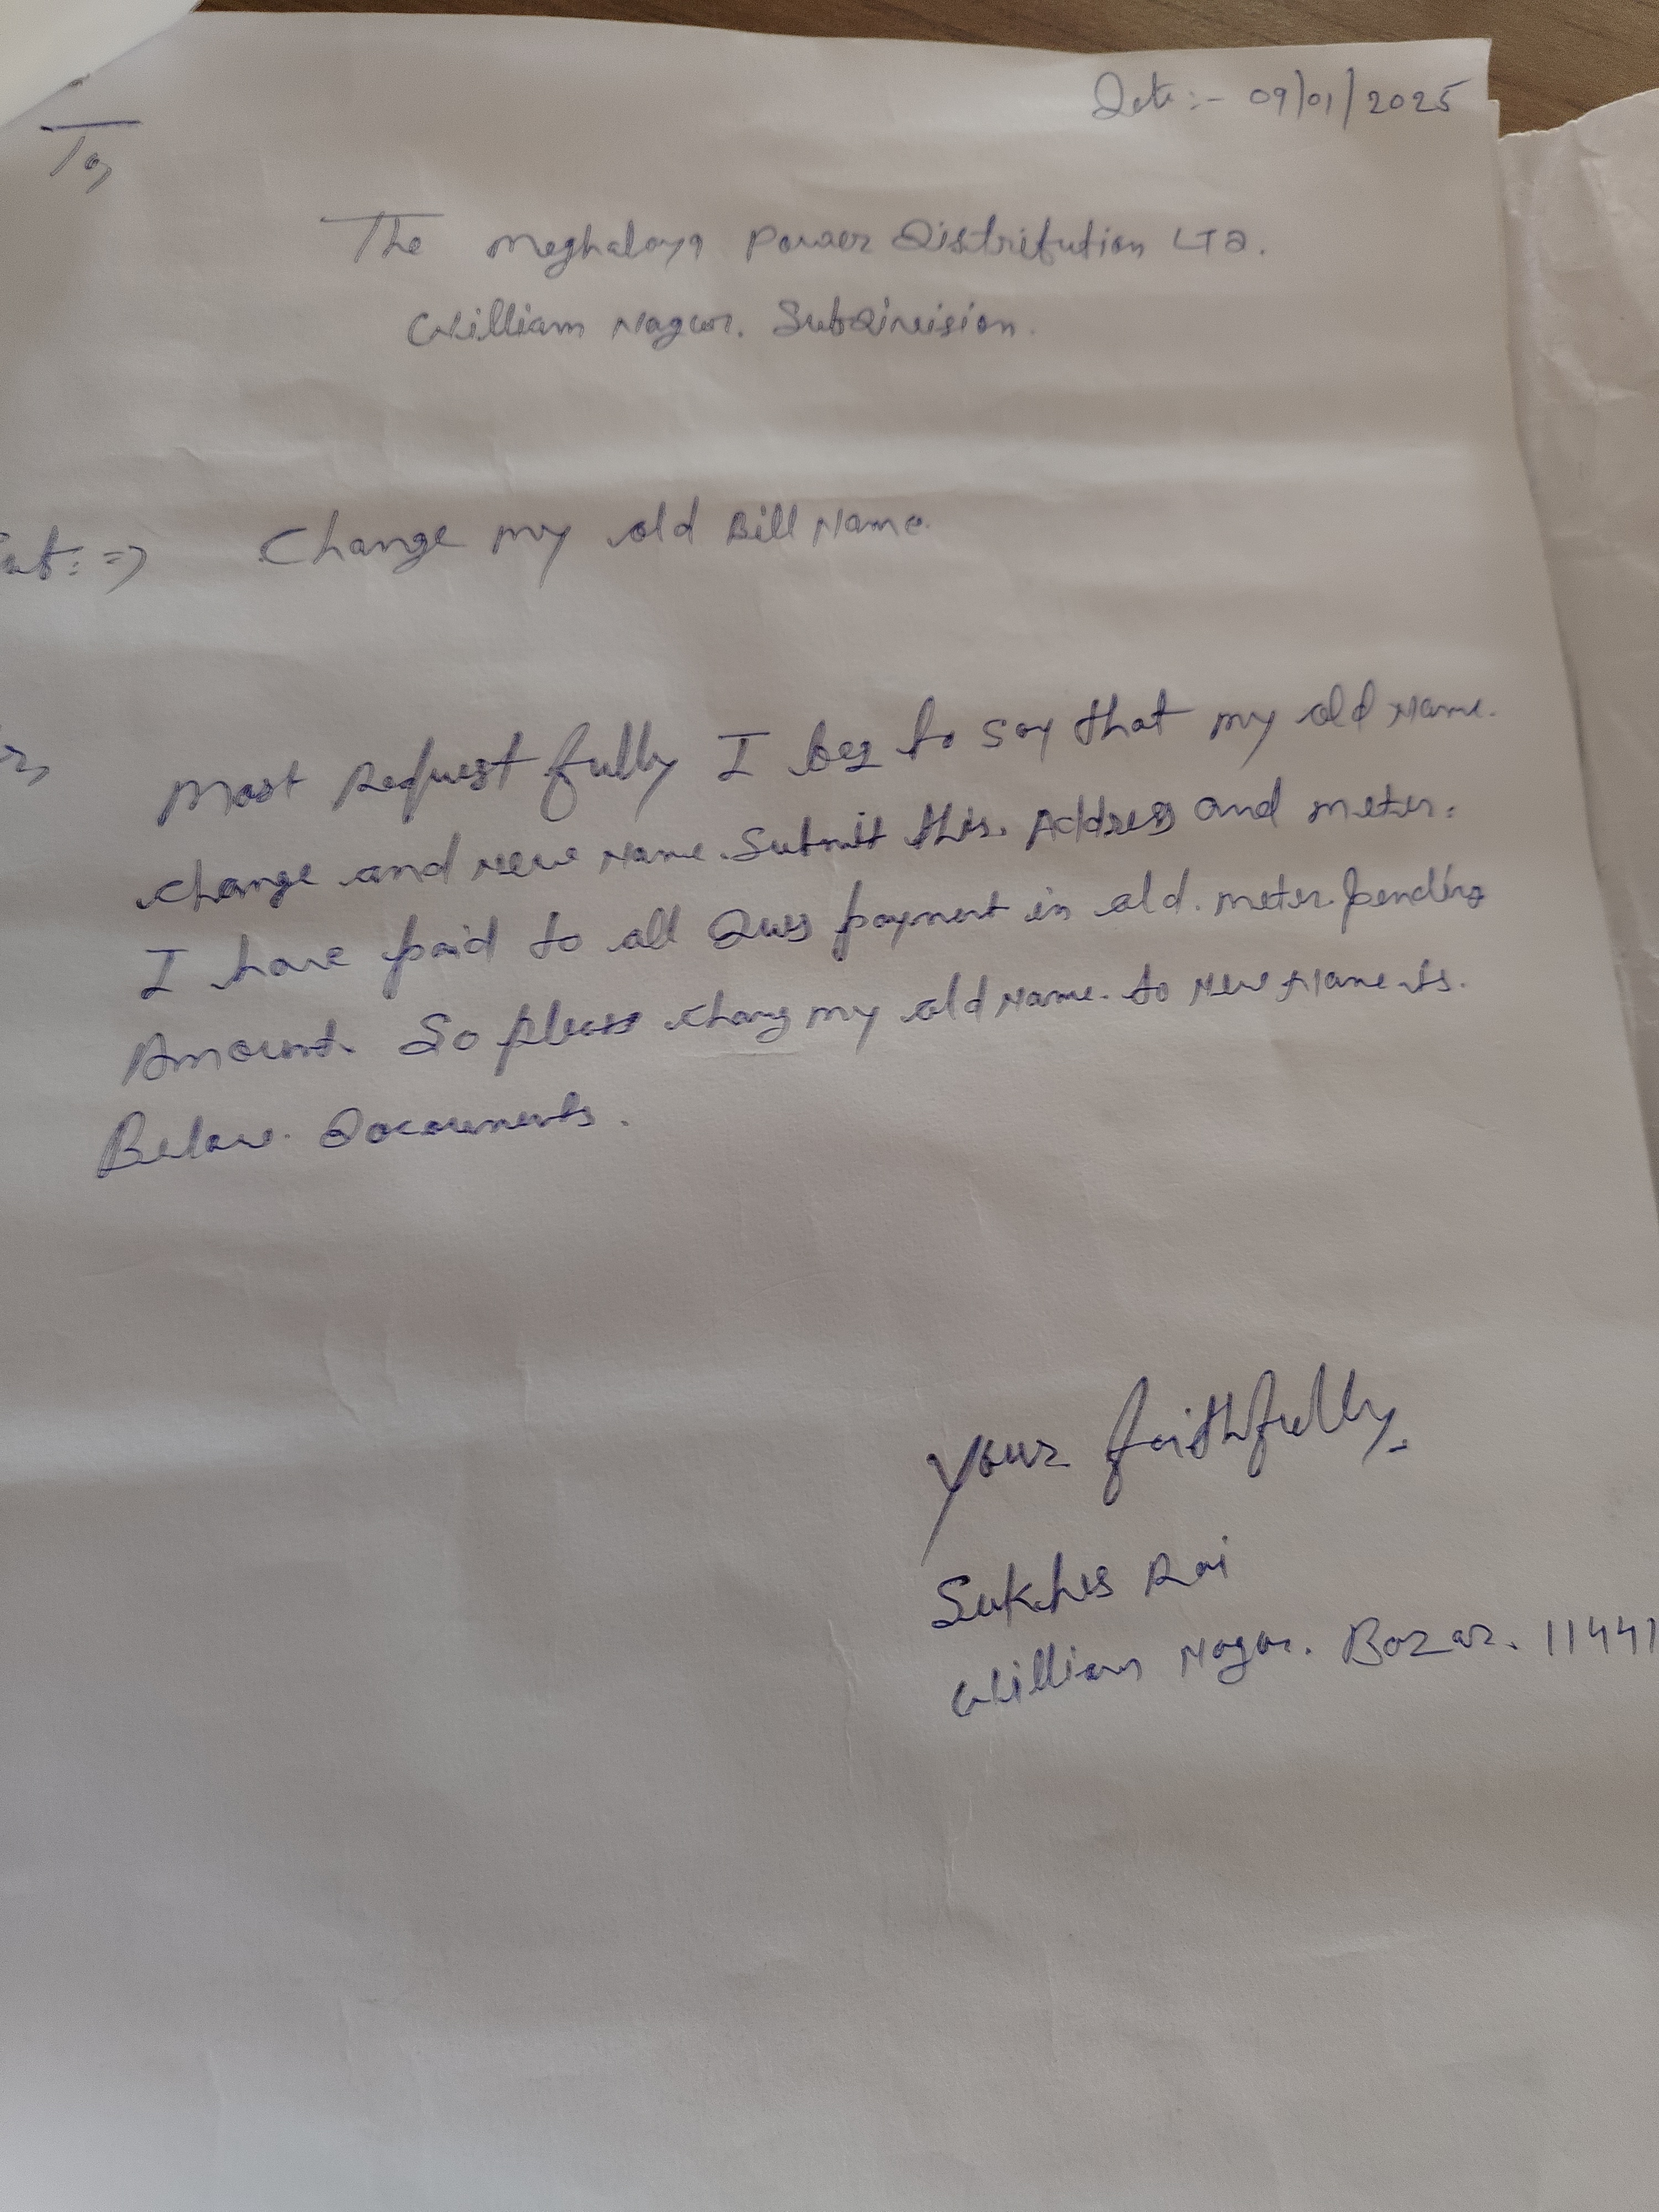 Date :- 09/01/2025
To,
The Meghalaya Power Distribution LTD.
William Nagar. SubDivision.
Change my old Bill Name.
Most Request fully I beg to say that my old Name.
change and New Name. Submit this. Address and meter.
I have paid to all Dues payment in old. meter pending
Amount. So please chang my old Name. to New Name is.
Below. Documents.
Your faithfully.
Rai
William Nagar. Bazar. 11441